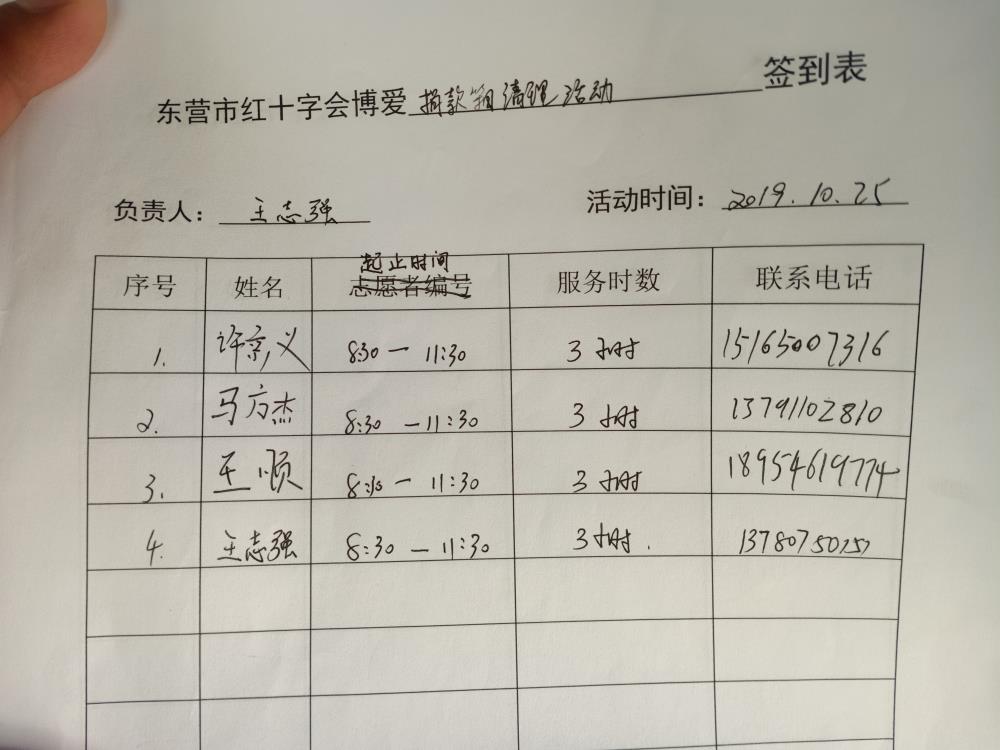 东营市红十字会博爱捐款箱清理活动签到表
负责人：王志强 活动时间：2019.10.25
起止时间
序号 姓名 志愿者编号 服务时数 联系电话
1. 许京义 8:30—11:30 3小时 15165007316
2. 马方杰 8:30—11:30 3小时 13791102810
3. 王顺 8:30—11:30 3小时 18954619774
4. 王志强 8:30—11:30 3小时.